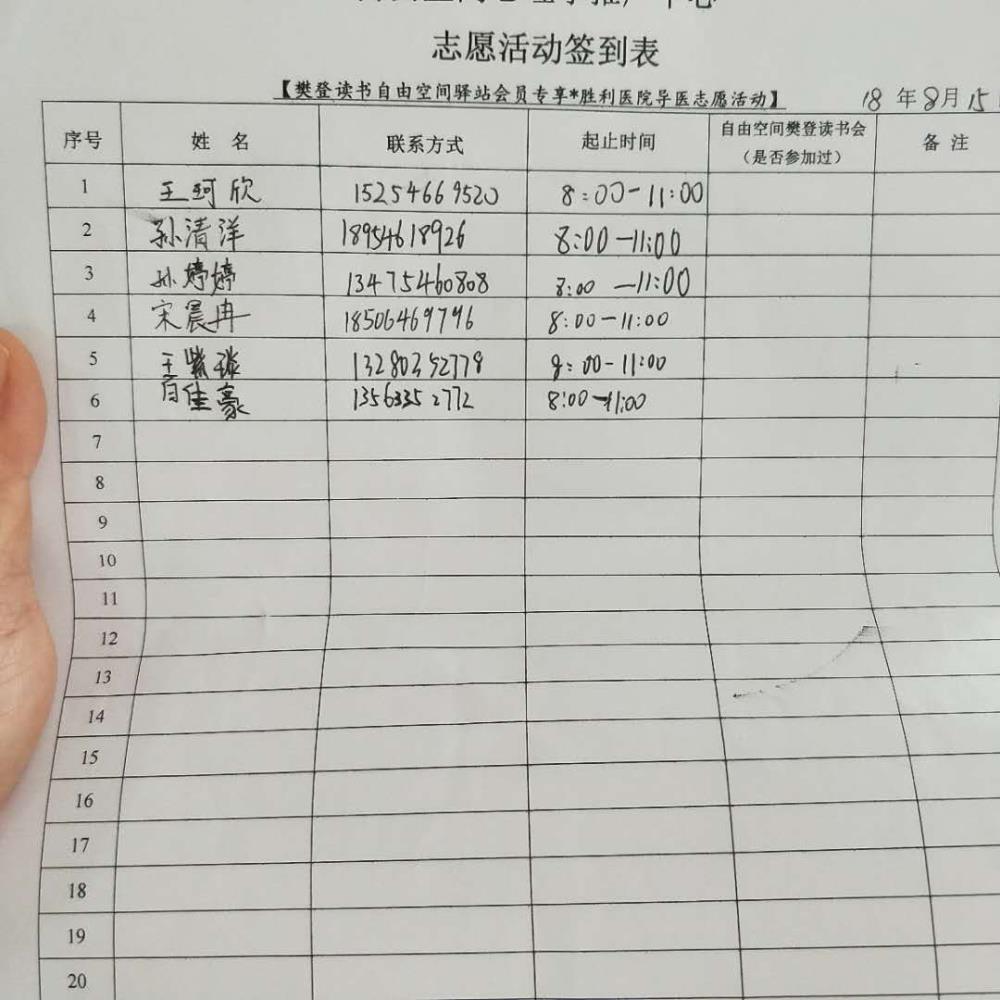 志愿活动签到表
【樊登读书自由空间驿站会员专享*胜利医院导医志愿活动】 18年8月15
序号 姓 名 联系方式 起止时间 自由空间樊登读书会（是否参加过） 备 注
1 王珂欣 15254669520 8:00-11:00
2 孙清洋 18954618926 8:00-11:00
3 孙婷婷 13475460808 8:00-11:00
4 宋晨冉 18506469796 8:00-11:00
5 王紫琰 13280352778 8:00-11:00
6 白佳豪 13563352772 8:00-11:00
7
8
9
10
11
12
13
14
15
16
17
18
19
20